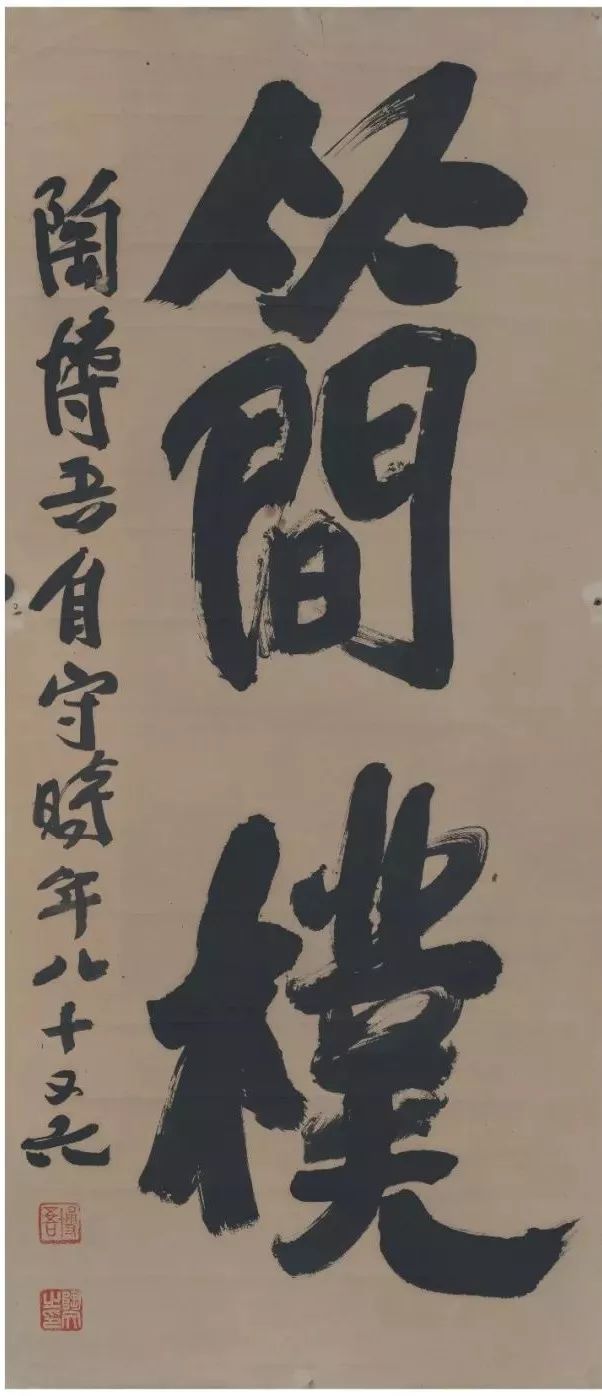 簡樸
陶博吾自守時年八十又六
博吾